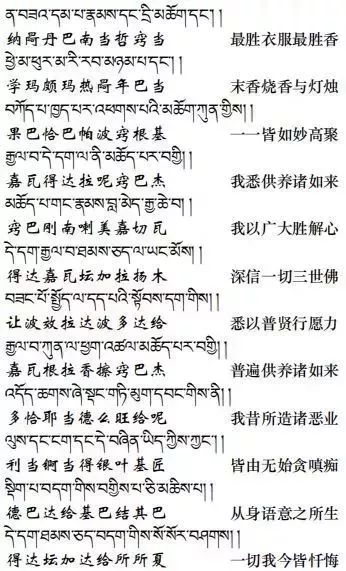 ན་བཟའ་དམ་པ་རྣམས་དང་དྲི་མཆོག་དང་། །
纳丹巴南当哲窍当 最胜衣服最胜香
ཕྱེ་མ་ཕུར་མ་རི་རབ་མཉམ་པ་དང་། །
学玛颇玛热年巴当 末香烧香与灯烛
བཀོད་པ་ཁྱད་པར་འཕགས་པའི་མཆོག་ཀུན་གྱིས། །
果巴恰巴帕波窍根基 一一皆如妙高聚
རྒྱལ་བ་དེ་དག་ལ་ནི་མཆོད་པར་བགྱི། །
嘉瓦得达拉呢窍巴杰 我悉供养诸如来
མཆོད་པ་གང་རྣམས་བླ་མེད་རྒྱ་ཆེ་བ། །
窍巴刚南喇美嘉切瓦 我以广大胜解心
དེ་དག་རྒྱལ་བ་ཐམས་ཅད་ལ་ཡང་མོས། །
得达嘉瓦坛加拉扬木 深信一切三世佛
བཟང་པོ་སྤྱོད་ལ་དད་པའི་སྟོབས་དག་གིས། །
让波效拉达波多达给 悉以普贤行愿力
རྒྱལ་བ་ཀུན་ལ་ཕྱག་འཚལ་མཆོད་པར་བགྱི། །
嘉瓦根拉香擦窍巴杰 普遍供养诸如来
འདོད་ཆགས་ཞེ་སྡང་གཏི་མུག་དབང་གིས་ནི། །
多恰耶当德么旺给呢 我昔所造诸恶业
ལུས་དང་ངག་དང་དེ་བཞིན་ཡིད་ཀྱིས་ཀྱང་། །
利当锕当得银叶基匠 皆由无始贪嗔痴
སྡིག་པ་བདག་གིས་བགྱིས་པ་ཅི་མཆིས་པ། །
德巴达给基巴结其巴 从身语意之所生
དེ་དག་ཐམས་ཅད་བདག་གིས་སོ་སོར་བཤགས། །
得达坛加达给所所夏 一切我今皆忏悔